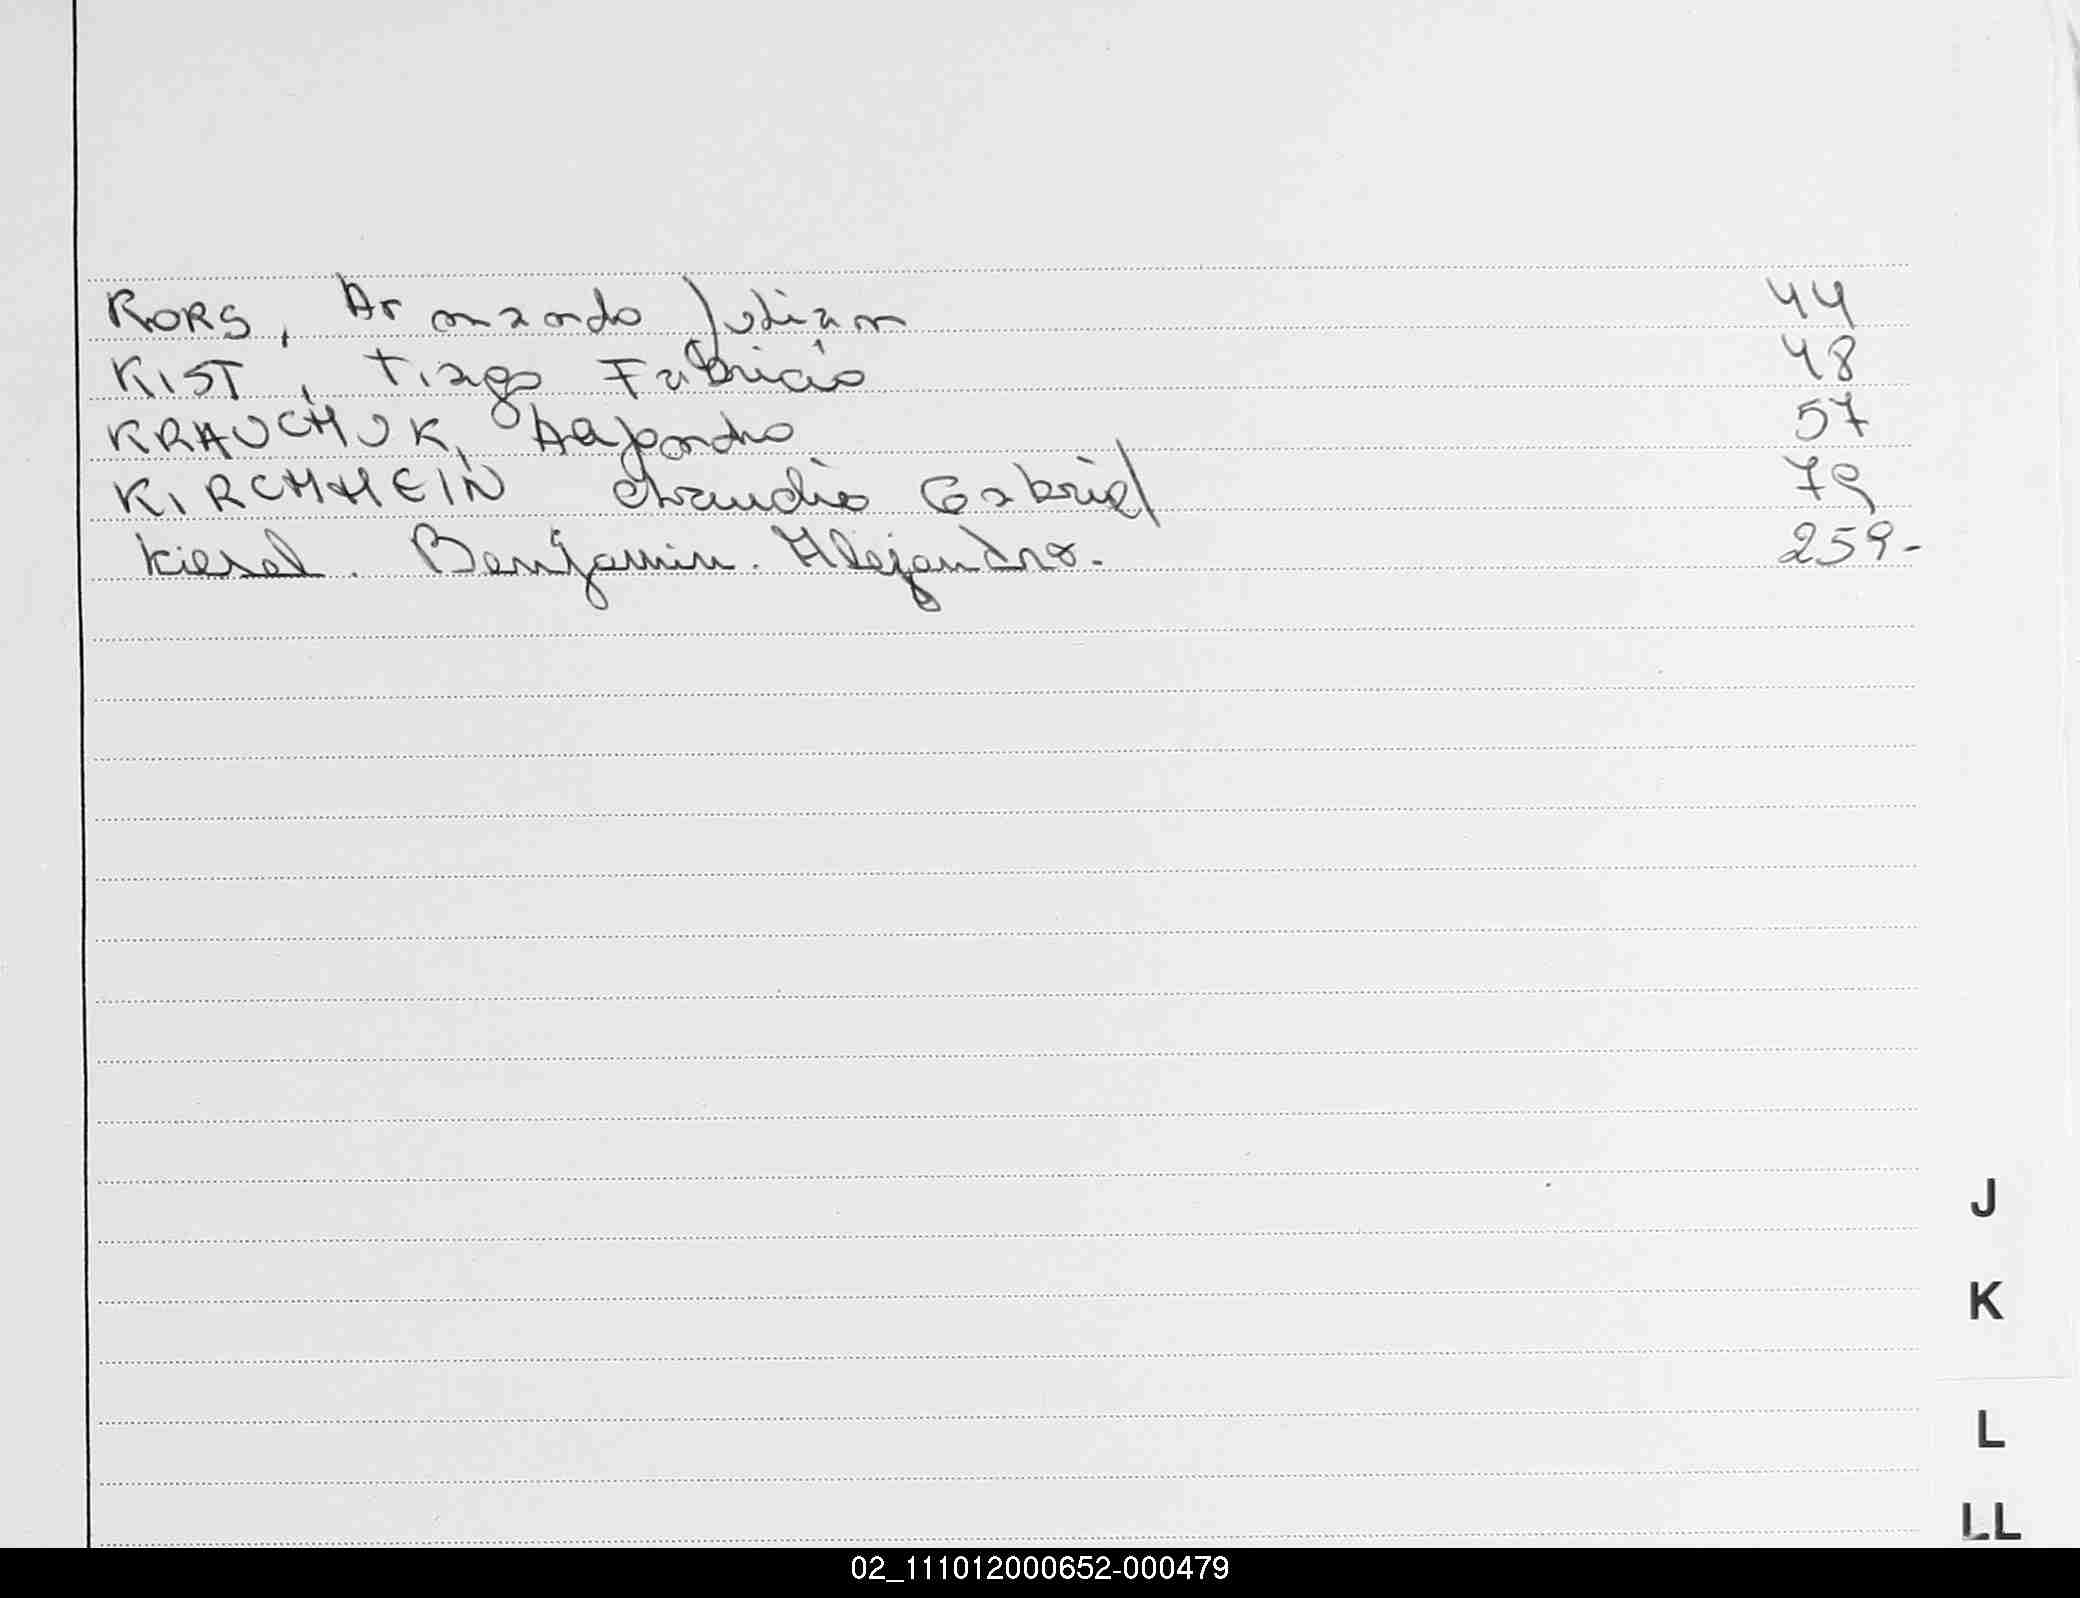 KORS, Armando Julian 44
KIST, Tiago Fabricio 48
KRAUCHUK, Alejandro 57
KIRCHHEIN Claudio Gabriel 79
Kiesel. Benjamin. Alejandro. 259-
J
K
L
LL
02_111012000652-000479